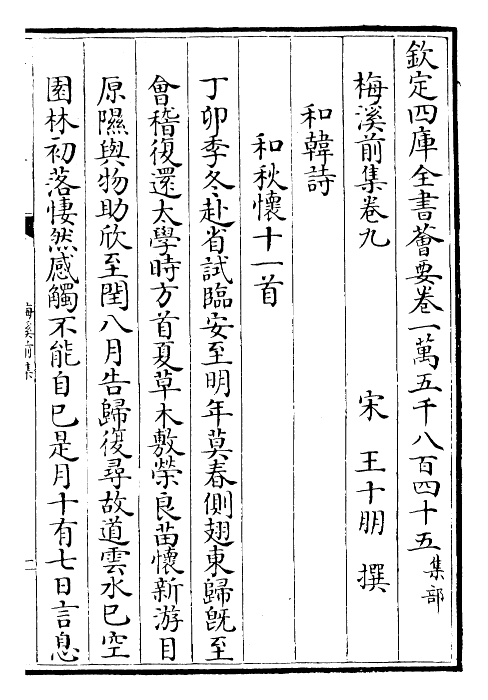 欽定四庫全書薈要卷一萬五千八百四十五集部
梅溪前集卷九
宋 王十朋 撰
和韓詩
和秋懷十一首
丁卯季冬赴省試臨安至明年莫春側翅東歸旣至
會稽復還太學時方首夏草木敷榮良苗懷新游目
原隰與物助欣至閏八月告歸復尋故道雲水已空
園林初落悽然感觸不能自已是月十有七日言息
梅溪前集
一